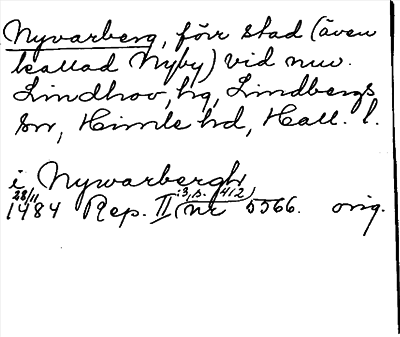 Nyvarberg, förr stad (även
kallad Nyby) vid nuv.
Lindhov, hg, Lindbergs
sn, Himle hd, Hall. l.
i Nywarbergh
28/11 :3, s. 412)
1484 Rep. II (nr 5566. orig.